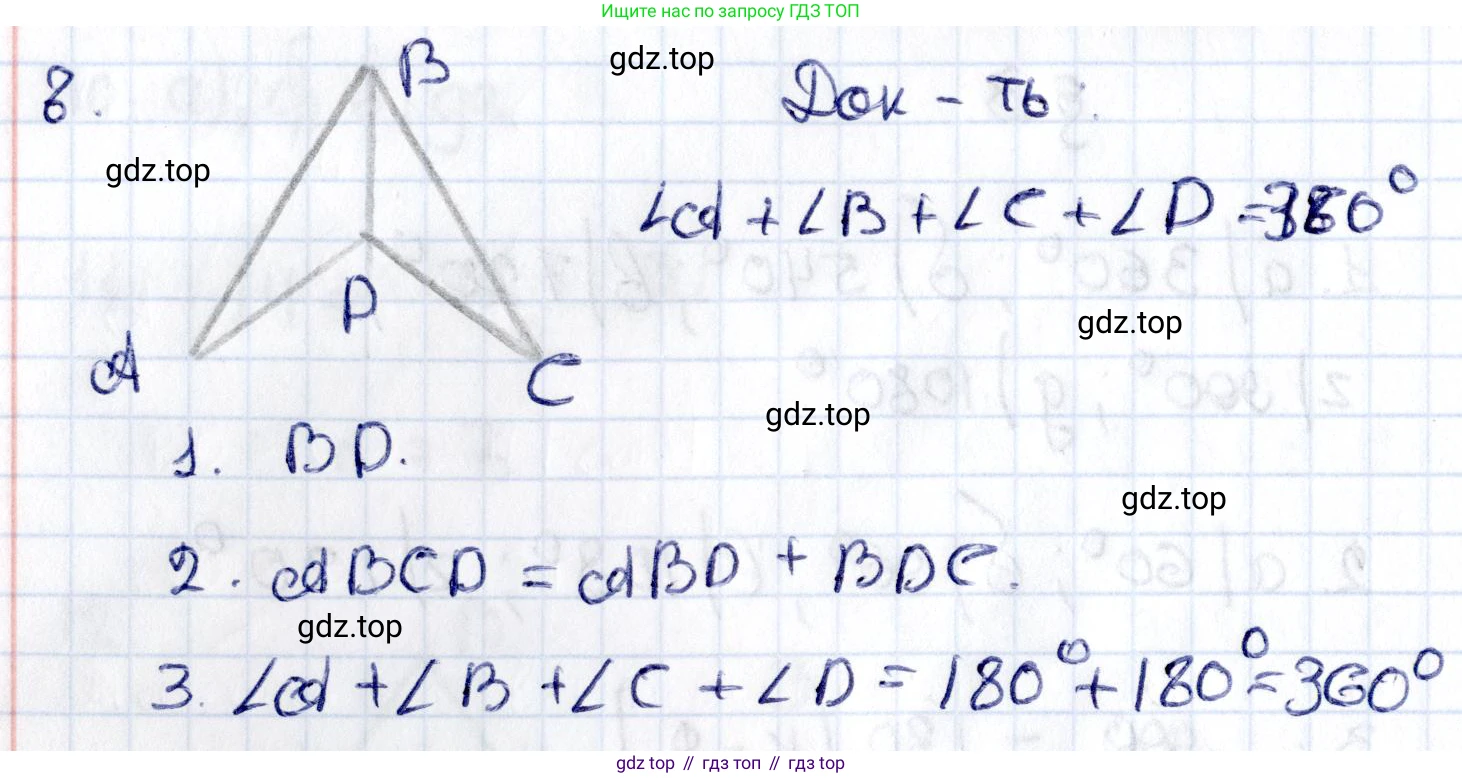 Ищите нас по запросу ГДЗ ТОП
gdz.top
8.
B
Док-ть:
gdz.top
∠A + ∠B + ∠C + ∠D = 360°
D
gdz.top
A
C
gdz.top
1. BD.
gdz.top
2. ABCD = ABD + BDC.
gdz.top
3. ∠A + ∠B + ∠C + ∠D = 180° + 180° = 360°
gdz.top // гдз топ // gdz.top